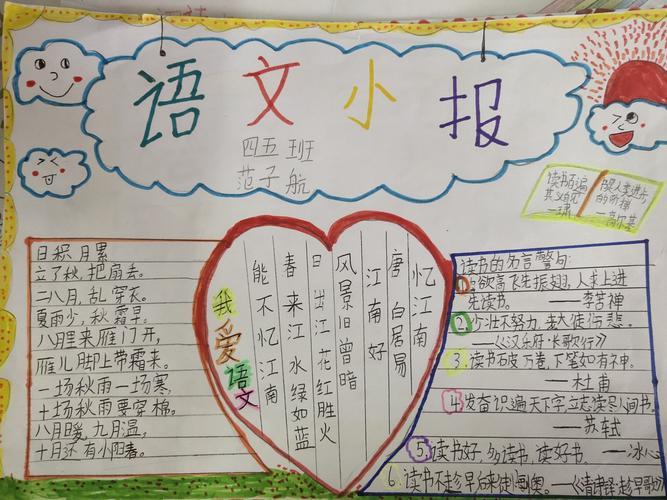 语文小报
四五 班
范子航
读书百遍
其义自见
是人类进步
的阶梯
—高尔基
日积月累
立了秋,把扇丢。
二八月,乱穿衣。
夏雨少,秋霜早。
八月里来雁门开,
雁儿脚上带霜来。
一场秋雨一场寒,
十场秋雨要穿棉。
八月暖,九月温,
十月还有小阳春。
忆江南
唐 白居易
江南好
风景旧曾暗
日出江花红胜火
春来江水绿如蓝
能不忆江南
我爱语文
读书的名言警句:
1.鸟欲高飞先振翅,人求上进
先读书。——李苦禅
2.少壮不努力,老大徒伤悲。
——《汉乐府·长歌行》
3.读书破万卷,下笔如有神。
——杜甫
4.发奋识遍天下字,立志读尽人间书。
——苏轼
5.读书好,多读书,读好书。——冰心
6.读书不趁早 后来徒悔懊。——《清诗铎·趁早歌》